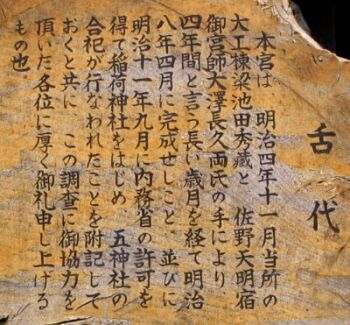 舌代
本宮は、明治四年十一月当所の
大工棟梁池田秀藏と 佐野天明宿
御宮師大澤長久両氏の手により
四年間と言う長い歳月を経て明治
八年四月に完成せしこと、並びに
明治十一年九月に内務省の許可を
得て稲荷神社をはじめ 五神社の
合祀が行なわれたことを附記して
おくと共に、この調査に御協力を
頂いた各位に厚く御礼申し上げる
もの也